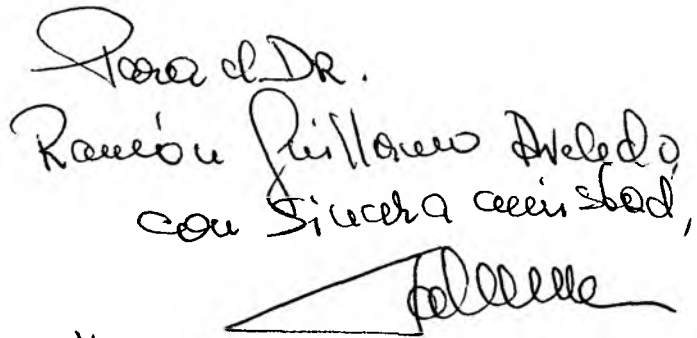 Para el DR.
Ramón Guillermo Aveledo,
con sincera amistad,